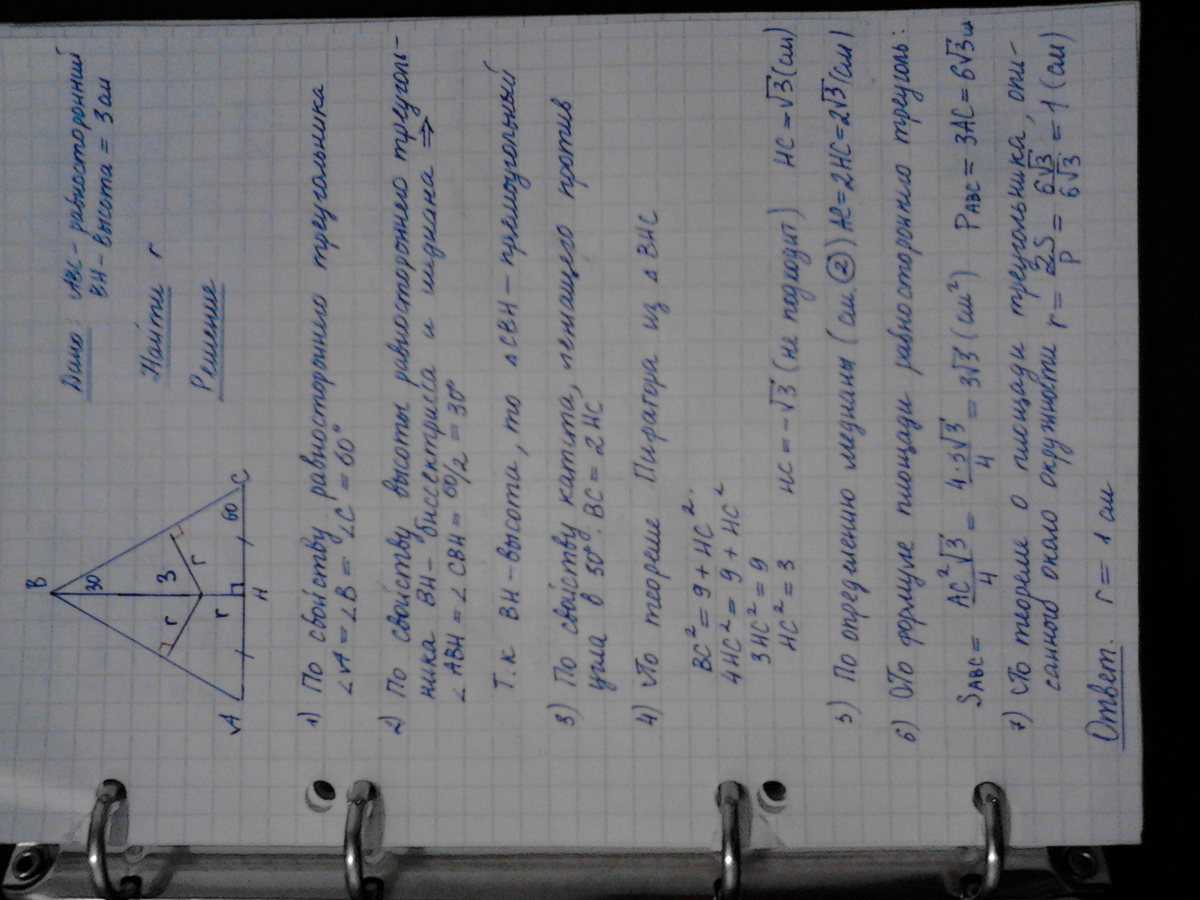 Дано: ABC - равносторонний
BH - высота = 3 см
Найти r
Решение
B
30
3
r
r
r
60
A
H
C
1) По свойству равностороннего треугольника
∠A = ∠B = ∠C = 60°
2) По свойству высоты равностороннего треуголь-
ника BH - биссектриса и медиана ⇒
∠ABH = ∠CBH = 60/2 = 30°
Т.к BH - высота, то △CBH - прямоугольный
3) По свойству катета, лежащего против
угла в 30°: BC = 2HC
4) По теореме Пифагора из △BHC
BC² = 9 + HC².
4HC² = 9 + HC²
3HC² = 9
HC² = 3 HC = -√3 (не подходит) HC = √3 (см)
5) По определению медианы (см. ②) AC = 2HC = 2√3 (см)
6) По формуле площади равностороннего треуголь:
S ABC = AC²√3/4 = 4·3√3/4 = 3√3 (см²) P ABC = 3AC = 6√3 см
7) По теореме о площади треугольника, опи-
санного около окружности r = 2S/P = 6√3/6√3 = 1 (см)
Ответ. r = 1 см